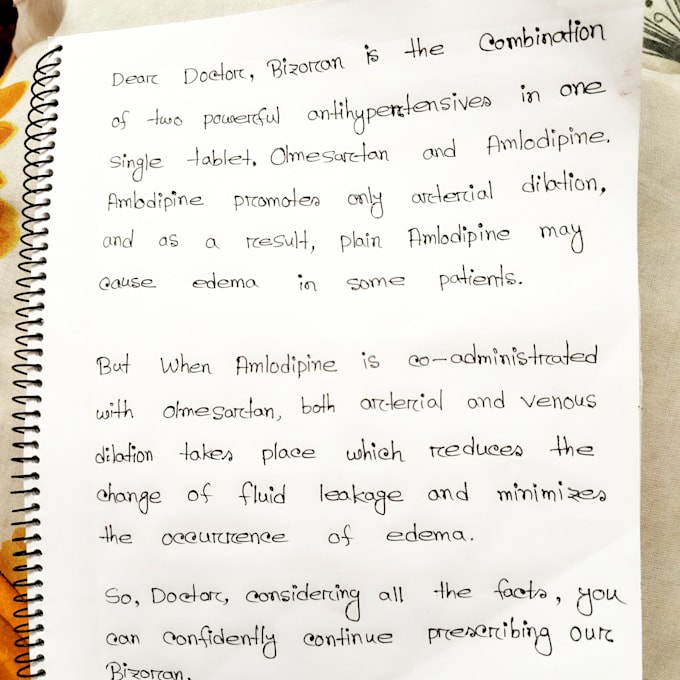 Dear Doctor, Bizoran is the Combination
of two powerful antihypertensives in one
single tablet. Olmesartan and Amlodipine.
Amlodipine promotes only arterial dilation,
and as a result, plain Amlodipine may
cause edema in some patients.
But When Amlodipine is co-administrated
with Olmesartan, both arterial and venous
dilation takes place which reduces the
change of fluid leakage and minimizes
the occurrence of edema.
So, Doctor, considering all the facts, you
can confidently continue prescribing our
Bizoran.